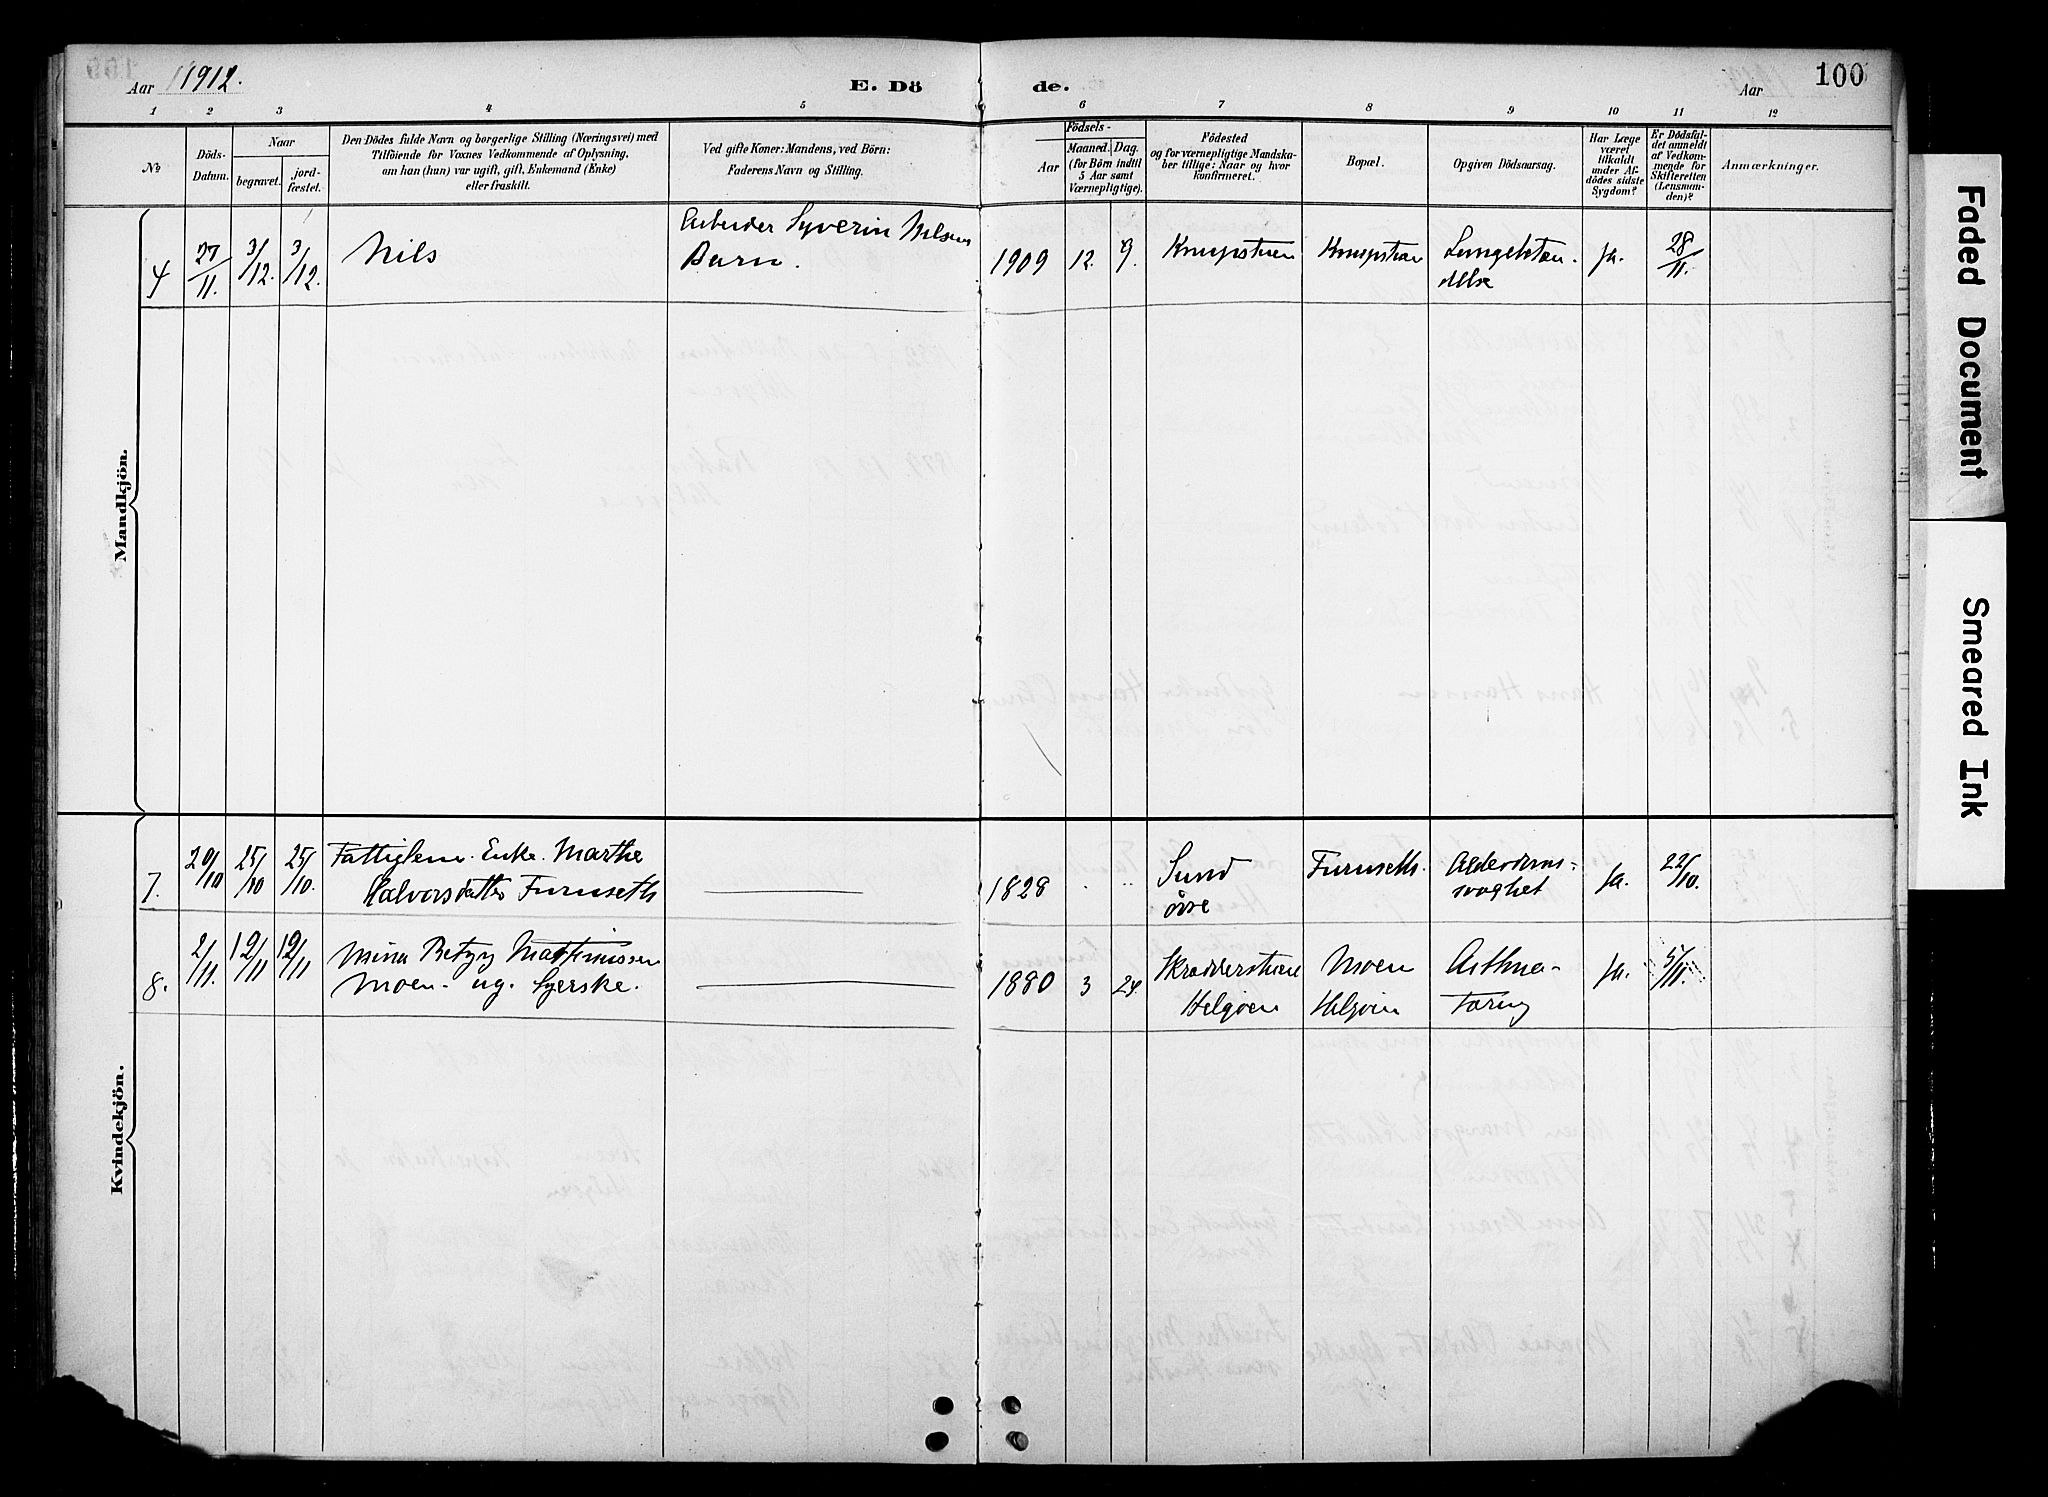 Aar 1912.
E. Dö
de.
Aar
100
1 2 3 4 5 6 7 8 9 10 11 12
No
Döds-
Datum.
Naar
begravet.
jord-
fæstet.
Den Dödes fulde Navn og borgerlige Stilling (Næringsvei) med
Tilföiende for Voxnes Vedkommende af Oplysning,
om han (hun) var ugift, gift, Enkemand (Enke)
eller fraskilt.
Ved gifte Koner: Mandens, ved Börn:
Faderens Navn og Stilling.
Födsels-
Aar
Maaned.
Dag.
(for Börn indtil
5 Aar samt
Værnepligtige).
Födested
og for værnepligtige Mandska-
ber tillige: Naar og hvor
konfirmeret.
Bopæl.
Opgiven Dödsaarsag.
Har Læge
været
tilkaldt
under Af-
dödes sidste
Sygdom?
Er Dödsfal-
det anmeldt
af Vedkom-
mende for
Skifteretten
(Lensman-
den)?
Anmærkninger.
Mandkjön.
4 27/11. 3/12. 3/12. Nils
Arbeider Syverin Nilsens
Barn.
1909 12. 9. Knupstuen Knupstuen Lungebetæn-
delse
Ja. 28/11.
Kvindekjön.
7. 20/10 25/10 25/10. Fattiglem. Enke. Marthe
Halvorsdatter Furuseth
1828 . .. Sund
övre
Furuseth. Alderdoms-
svaghet
Ja. 22/10.
8. 2/11. 12/11 12/11 Mina Betzy Mathinussen
Moen. ug. Syerske.
1880 3 24. Skrædderstuen
Helgöen
Moen
Helgöen
Asthma-
tæring
Ja. 5/11.
Faded Document
Smeared Ink